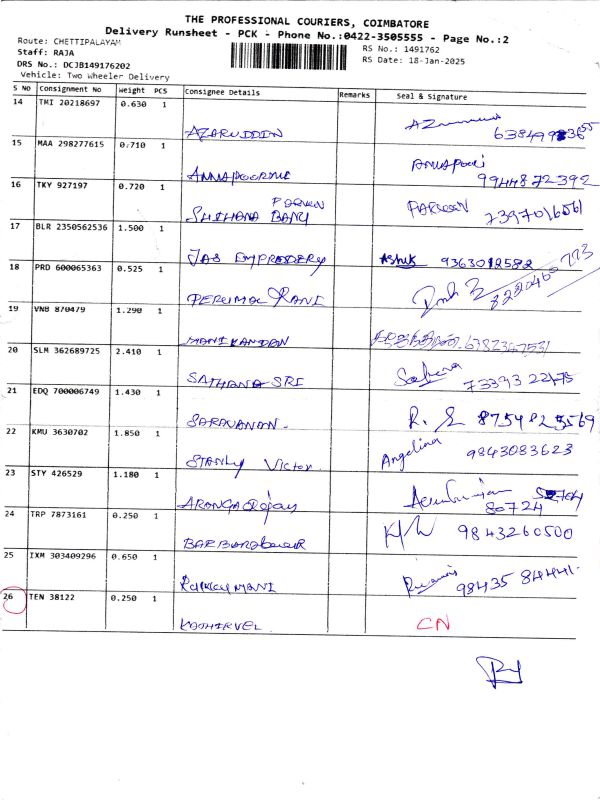 THE PROFESSIONAL COURIERS, COIMBATORE
Delivery Runsheet - PCK - Phone No.:0422-3505555 - Page No.:2
Route: CHETTIPALAYAM
Staff: RAJA
DRS No.: DCJB149176202
Vehicle: Two Wheeler Delivery
RS No.: 1491762
RS Date: 18-Jan-2025
S No Consignment No Weight PCS Consignee Details Remarks Seal & Signature
14 TMI 20218697 0.630 1 AZARUDDIN
15 MAA 298277615 0.710 1 ANNAPOORANI 9944872392
16 TKY 927197 0.720 1 SHIHANA BANU PARVEN PARVEEN 7397016561
17 BLR 2350562536 1.500 1 JAS Ashik 9363012582
18 PRD 600065363 0.525 1 PERUMAL RANI
19 VNB 870479 1.290 1 MANIKANDAN 6382367531
20 SLM 362689725 2.410 1 SATHANA SRI 73393 22475
21 EDQ 700006749 1.430 1 SARAVANAN. R. 8754825569
22 KMU 3630702 1.850 1 STANLY VICTOR. Angelina 9843083623
23 STY 426529 1.180 1 80724
24 TRP 7873161 0.250 1 9843260500
25 IXM 303409296 0.650 1 RUKKUMANI 98435 84441.
26 TEN 38122 0.250 1 KATHIRVEL CN